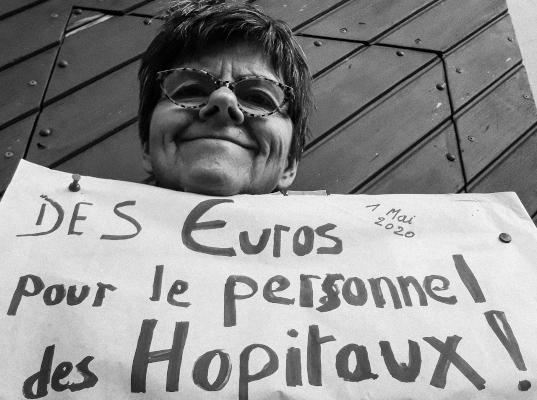 DES Euros
1 Mai
2020
pour le personnel
des Hopitaux!